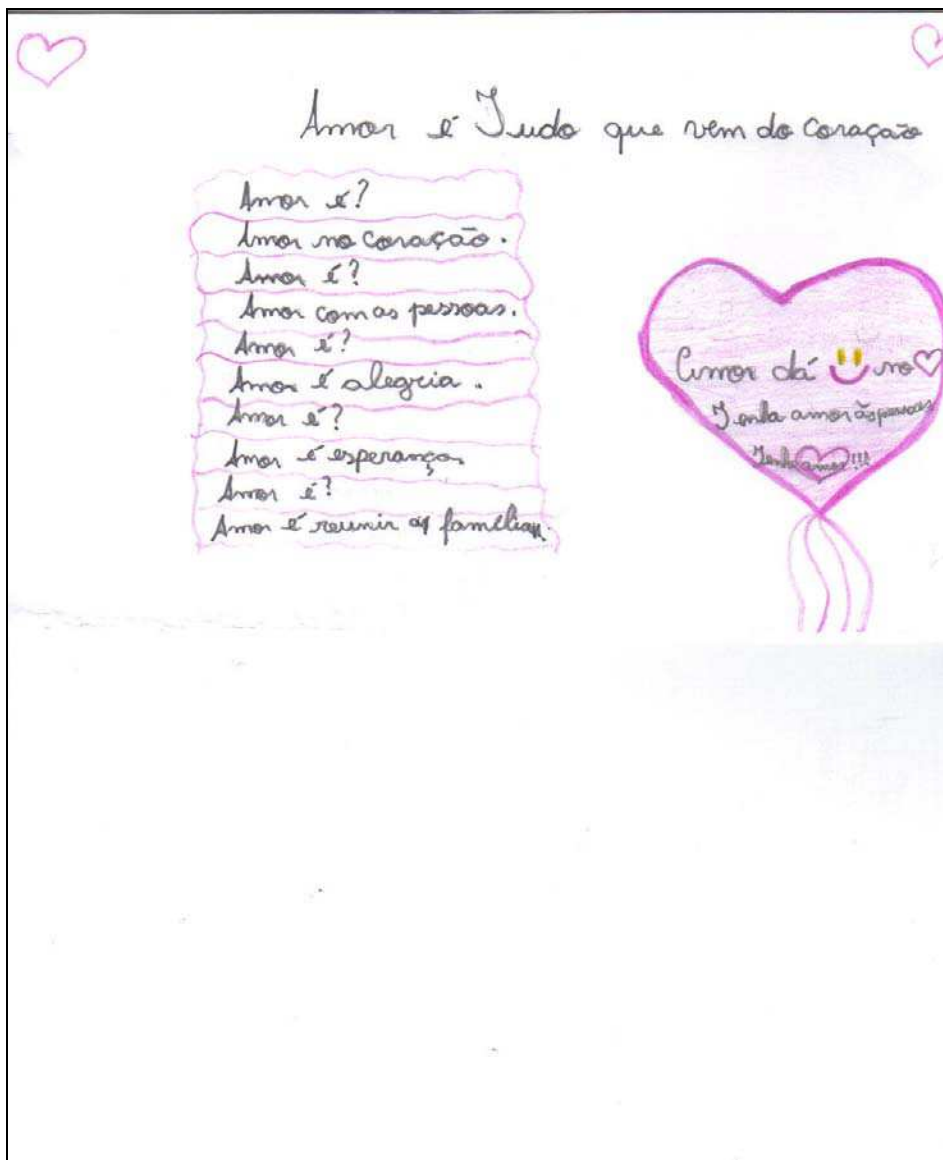 Amor é Tudo que vem do Coração
Amor é?
Amor no coração.
Amor é?
Amor com as pessoas.
Amor é?
Amor é alegria.
Amor é?
Amor é esperança
Amor é?
Amor é reunir as famílias.
Amor dá no
Tenha amor às pessoas
Tenha amor!!!